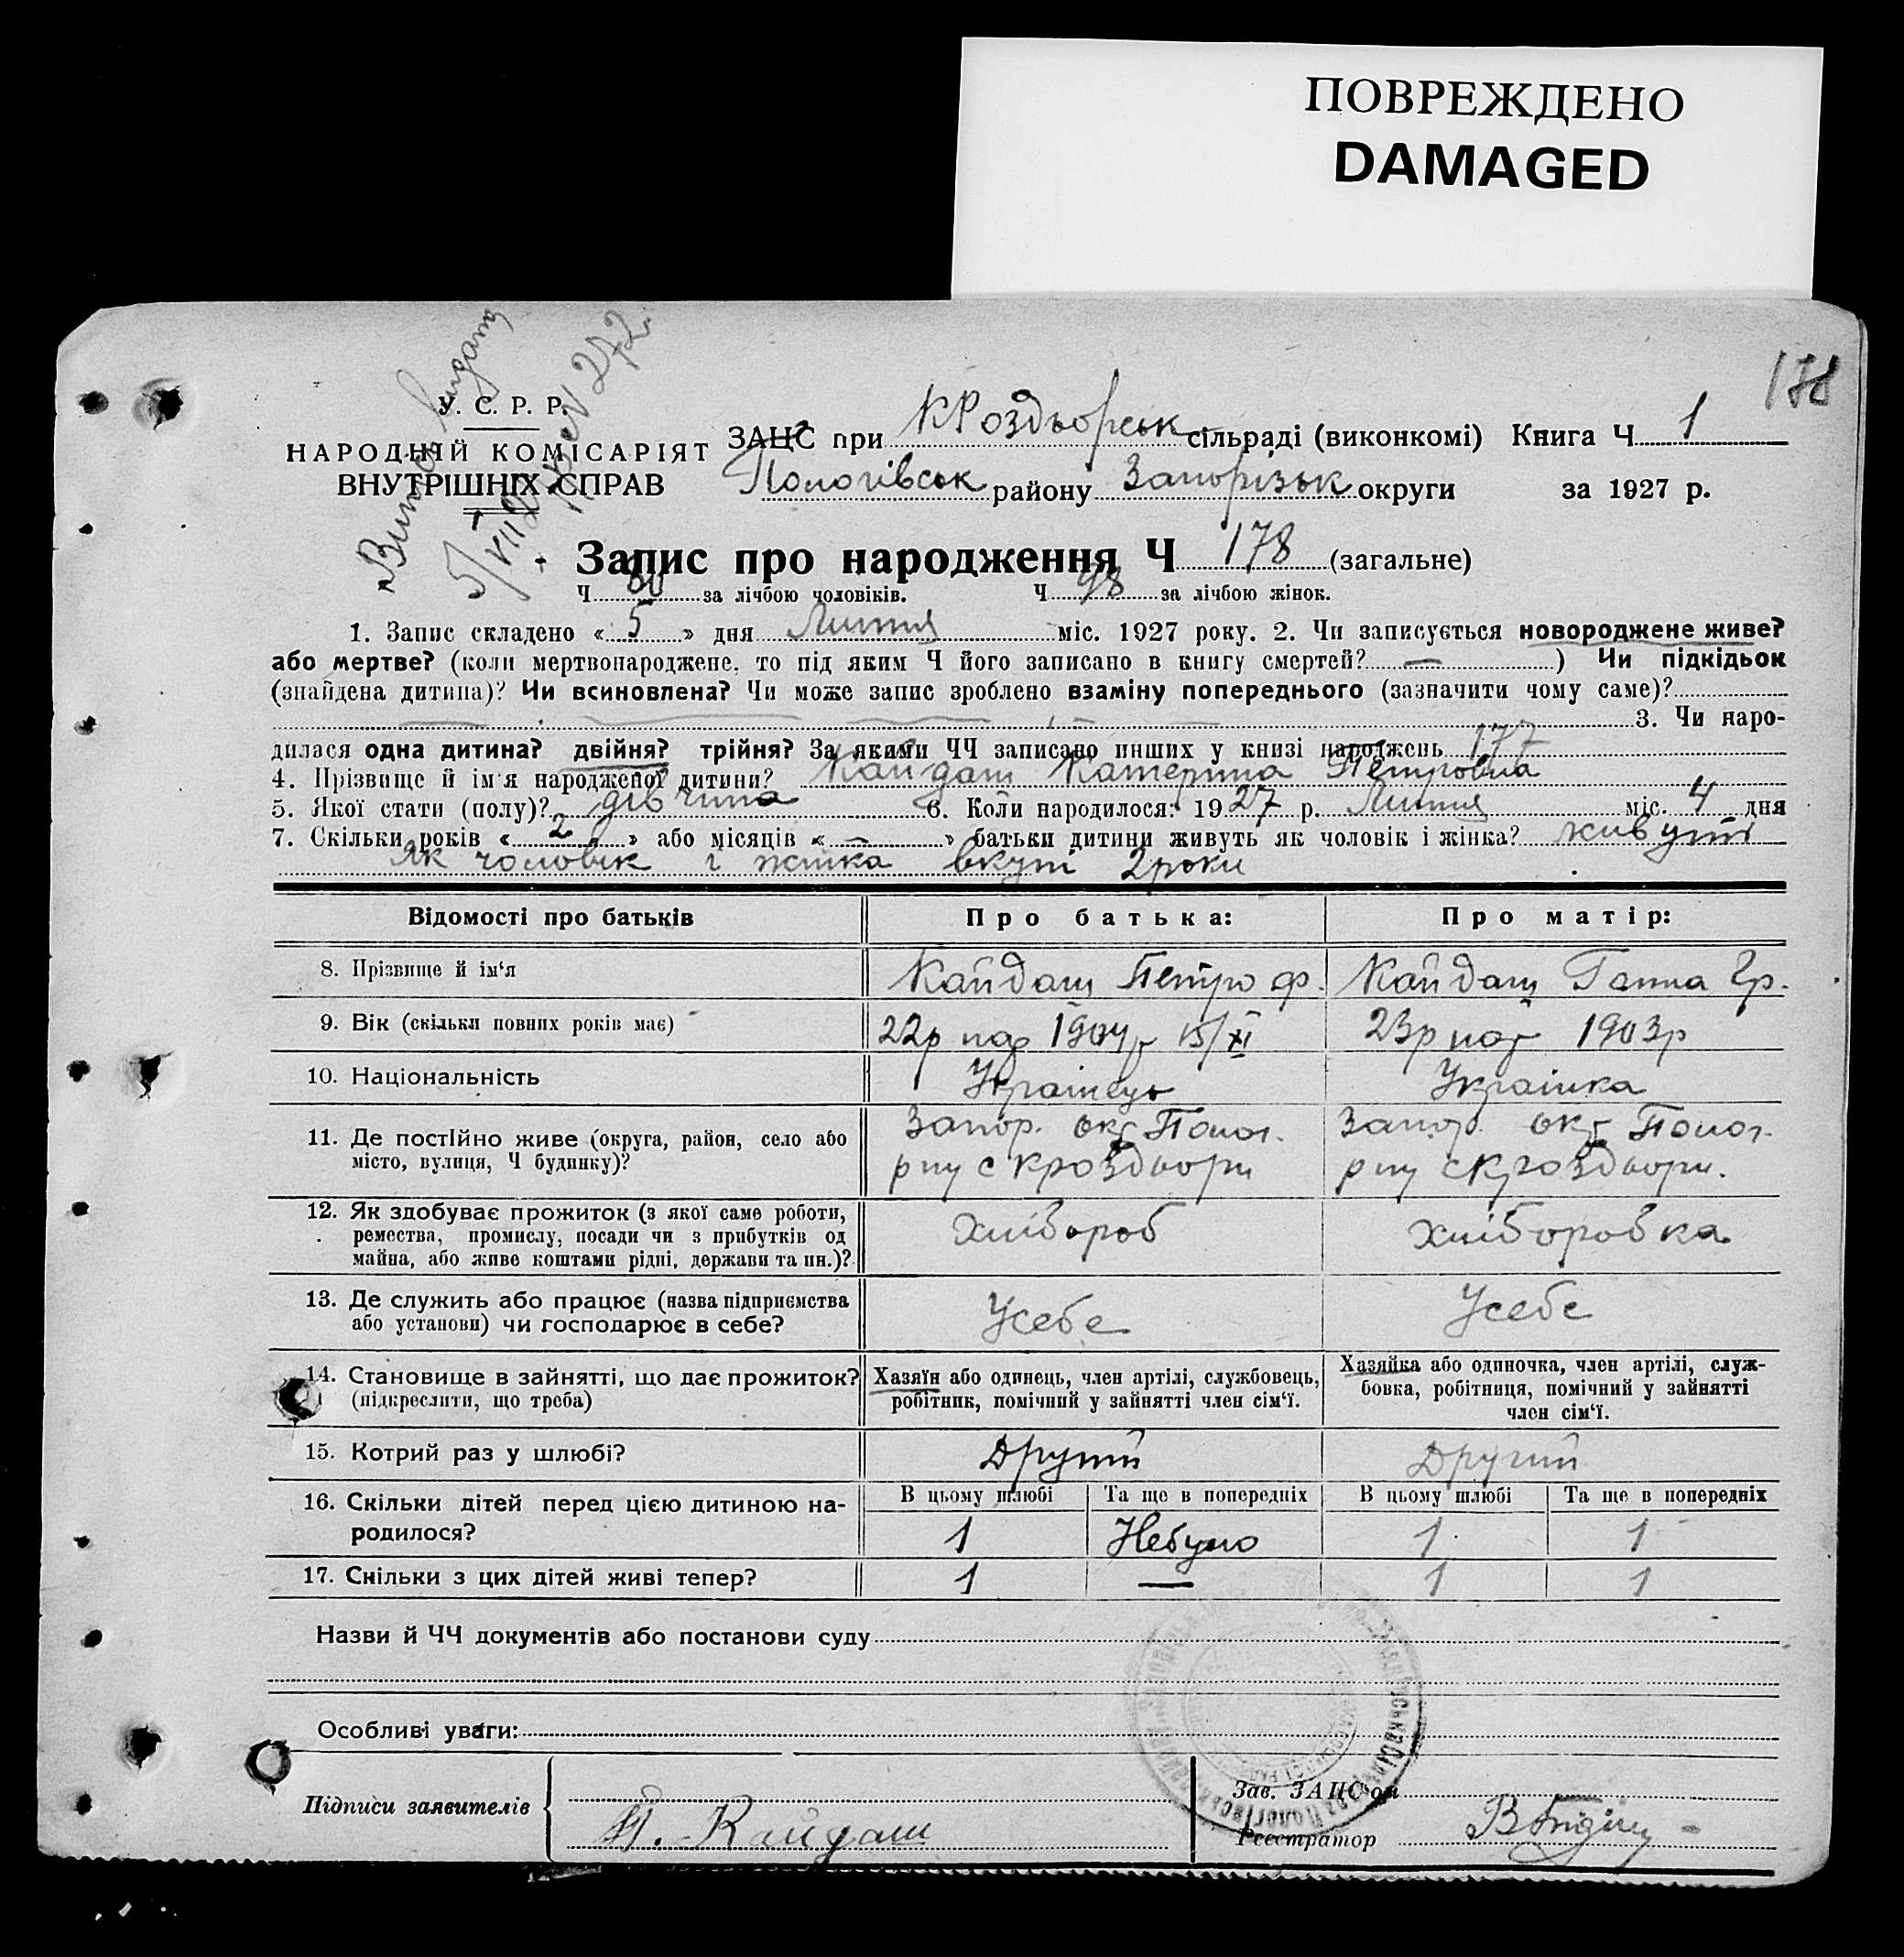 ПОВРЕЖДЕНО
DAMAGED
178
У. С. Р. Р.
НАРОДНІЙ КОМІСАРІЯТ
ВНУТРІШНІХ СПРАВ
№ 272
ЗАЦС при КРоздорськ сільраді (виконкомі) Книга Ч 1
Пологівськ району Запорізьк округи за 1927 р.
Запис про народження Ч 178 (загальне)
Ч 80 за лічбою чоловіків. Ч 98 за лічбою жінок.
1. Запис складено « 5 » дня Липня міс. 1927 року. 2. Чи записується новороджене живе?
або мертве? (коли мертвонароджене, то під яким Ч його записано в книгу смертей? — ) Чи підкідьок
(знайдена дитина)? Чи всиновлена? Чи може запис зроблено взаміну попереднього (зазначити чому саме)?
3. Чи наро-
дилася одна дитина? двійня? трійня? За якими ЧЧ записано инших у книзі народжень 177
4. Прізвище й ім'я народженої дитини? Кайдаш Катерина Петровна
5. Якої стати (полу)? дівчина 6. Коли народилося: 1927 р. Липня міс. 4 дня
7. Скільки років « 2 » або місяців « — » батьки дитини живуть як чоловік і жінка? живуть
як чоловік і жінка вкупі 2 роки
Відомості про батьків Про батька: Про матір:
8. Прізвище й ім'я Кайдаш Петро Ф. Кайдаш Ганна Гр.
9. Вік (скільки повних років має) 22р нар 1904р 15/XI 23р нар 1903р
10. Національність Українець Українка
11. Де постійно живе (округа, район, село або місто, вулиця, Ч будинку)? Запор. окр Полог. Запор. окр Полог.
12. Як здобуває прожиток (з якої саме роботи, ремества, промислу, посади чи з прибутків од майна, або живе коштами рідні, держави та ин.)? Хлібороб хліборобка
13. Де служить або працює (назва підприємства або установи) чи господарює в себе? Усебе Усебе
14. Становище в зайнятті, що дає прожиток? (підкреслити, що треба) Хазяїн або одинець, член артілі, службовець, робітник, помічний у зайнятті член сім'ї. Хазяйка або одиночка, член артілі, служ-
бовка, робітниця, помічний у зайнятті член сім'ї.
15. Котрий раз у шлюбі? Другий Другий
16. Скільки дітей перед цією дитиною на-
родилося? В цьому шлюбі Та ще в попередніх В цьому шлюбі Та ще в попередніх
1 Небуло 1 1
17. Скільки з цих дітей живі тепер? 1 — 1 1
Назви й ЧЧ документів або постанови суду
Особливі уваги:
Підписи заявителів
П. Кайдаш
Зав. ЗАЦС'ом
Реєстратор